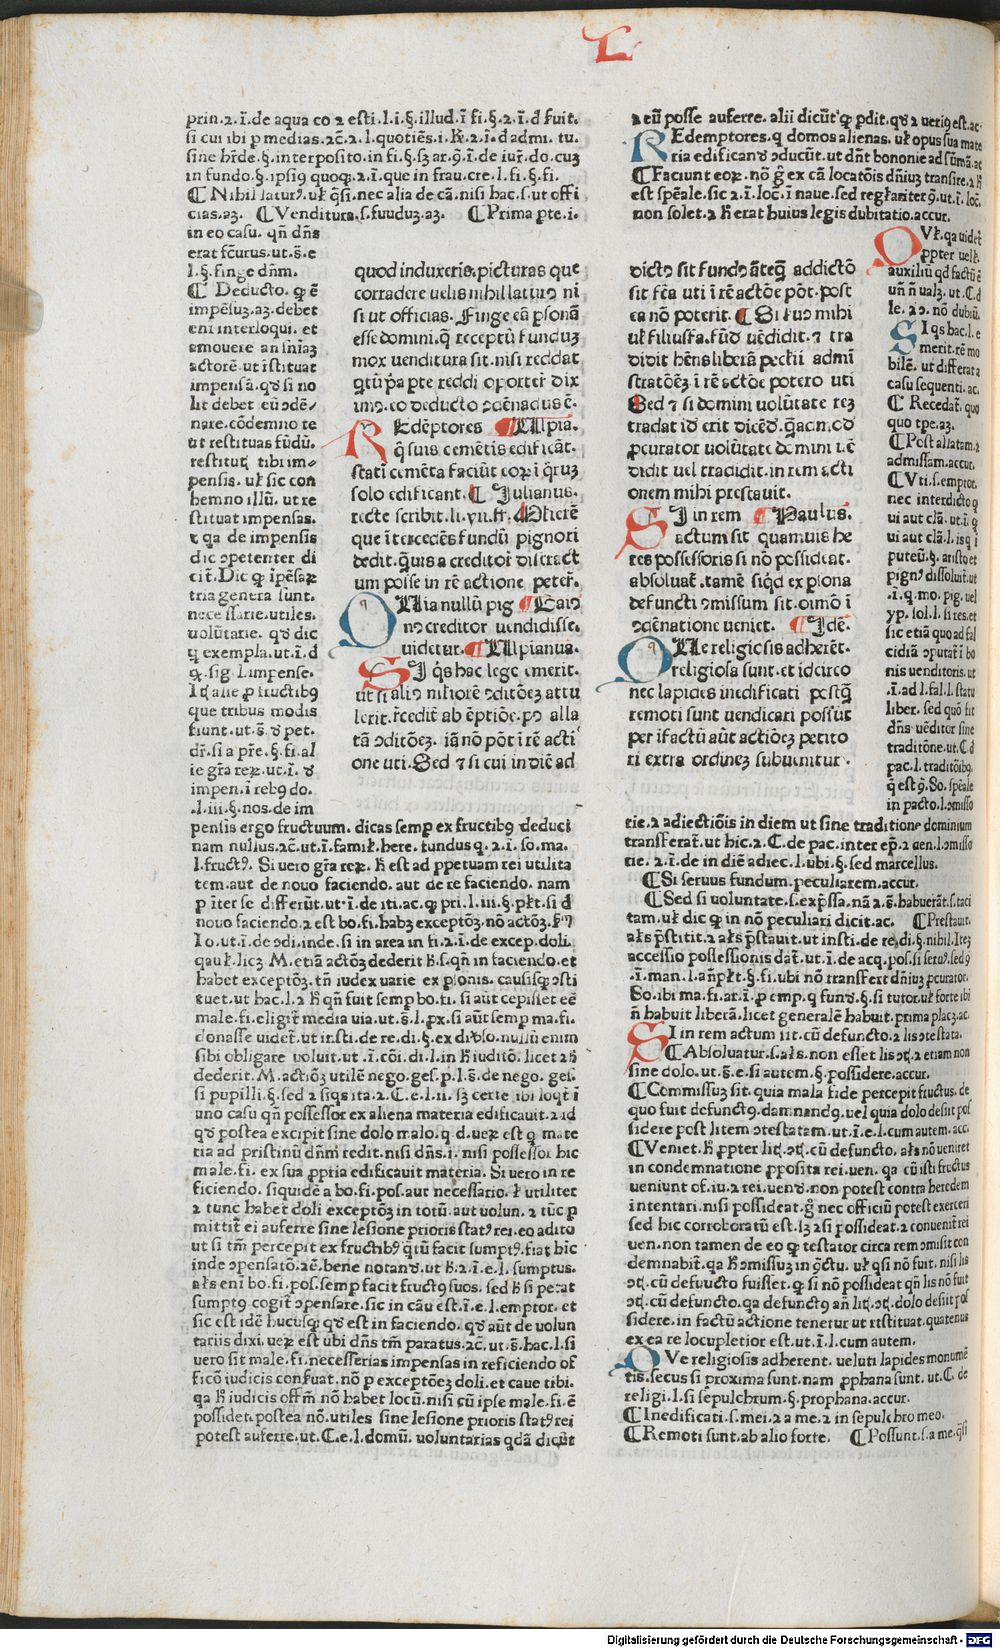 L
prin.2.ī.de aqua co 2 esti.l.i.§.illud.ī fi.§.2.ī.đ fuit.
si cui ibi p medias.2c̄.2.l.quotiēs.i.
sine hr̄de.§.interposito.in fi.§.sꝫ ar.9.ī.de iur̄.do.cuꝫ
in fundo.§.ipsi9 quoqꝫ.2.ī.que in frau.cre.l.fi.§.fi.
¶ Nihil latur9.uł q̄si.nec alia de cā.nisi hac.s.ut offi
cias.aꝫ. ¶ Venditura.s.fuuduꝫ.aꝫ. ¶ Prima pte.i.
in eo casu. qn̄ dn̄s
erat fc̄urus.ut.s̄.e
l.§.finge dn̄m.
¶ Deducto. qꝫ ē
impēsuꝫ.aꝫ.debet
eni interloqui. et
amouere an īniaꝫ
actorē.ut īstituat
impensā.qđ si no
lit debet eū ɔdē-
nare.cōdemno te
ut restituas fūdū.
restitutꝭ tibi im-
pensis. uł sic con
hemno illū. ut re
stituat impensas.
t qa de impensis
dic ɔpetenter di
cit̄.Dic qꝫ īpēsaꝝ
tria genera sunt.
necessarie.utiles.
uolūtarie. qđ dic
ꝙ exempla.ut.ī.đ
ꝙ.sig.l.impense.
Itꝫ alie p fructib9
que tribus modis
fiunt.ut.s̄.đ pet.
dr̄.si a pr̄e.§.fi.al
ie gr̄a reꝝ.ut.ī. đ
impen.ī reb9 do.
.l.iii.§.nos.de im
pensis ergo fructuum. dicas semp ex fructib9 deduci
nam nullus.2c̄.ut.ī.famił.here. fundus q.2.ī.so.ma.
l.fruct9. Si uero gr̄a reꝝ. h̄ est ad ppetuam rei utilita
tem.aut de nouo faciendo.aut de re faciendo. nam
p īter se differūt.ut.ī.de iti.ac.qꝫ pri.l.iii.§.pl̄t.si đ
nouo faciendo.2 est bo.fi.habꝫ exceptōꝫ.nō actōꝫ.
Io.ut.ī.de ɔdi.inde.si in area in fi.2.ī.de excep.doli.
qauł.licꝫ M.etiā actōꝫ dederit h̄.s.qn̄ in faciendo.et
habet exceptōꝫ.tn̄ iudex uarie ex psonis. causisqꝫ ɔsti
tuet.ut hac.l.2 h̄ qn̄ fuit semp bo.fi.si aut cepisset eē
male.fi.eligit̄ media uia.ut.s̄.l.px.si aūt semp ma.fi.
donasse uidet̄.ut īr.sti.de re.di.§.ex diuso.nullū enim
sibi obligare voluit.ut.ī.cōi.di.l.in h̄ iuditō.licet 2 h̄
dederit.M.actiōꝫ utilē nego.ges.p.l.s̄.de nego. ges.
si pupilli.§.sed 2 siqs ita.2.C.e.l.ii.sꝫ certe ibi loqt̄ ī
uno casu qn̄ possessor ex aliena materia edificauit.2 id
qđ postea excipit sine dolo malo.q d.ueꝝ est ꝙ mate
ria ad pristinū dn̄m redit.nisi dn̄s.i.nisi possessor hic
male.fi.ex sua ppria edificauit materia. Si uero in re
ficiendo.siquidē a bo.fi.pos.aut necessario. ł utiliter
2 tunc habet doli exceptōꝫ in totū.aut uolun.2 tūc p
mittit̄ ei auferre sine lesione prioris stat9 rei.eo aditu
ut si tm̄ percepit ex fructib9 q̄tū facit sumpt9.fiat hic
inde ɔpensatō.2c̄.bene notanđ.ut h̄.2.ī.e.l.sumptus.
ałs enī bo.fi.pos.semp facit fruct9 suos. sed h̄ si perat
sumpt9 cogit̄ ɔpensare.sic in cāu est.ī.e.l.emptor.et
sic est idē hucusqꝫ qđ est in faciendo. qđ aūt de uolun
tariis dixi.ueꝝ est ubi dn̄s tm̄ paratus.2c̄.ut.s̄.hac.l.si
uero sit male.fi.necesserias impensas in reficiendo of
ficō iudicis confuat.nō p exceptōeꝫ doli.et caue tibi.
qa h̄ iudicis offm̄ nō habet locū.nisi cū ipse male.fi.ē
possidet.postea nō.utiles sine lesione prioris stat9 rei
potest auferre.ut.C.e.l.domū. uoluntarias qdā dicūt
quod induxeris.picturas que
corradere uelis nihil latur9 ni
si ut officias. Finge eā psonā
esse domini.q̄ receptū funduꝫ
mox uenditura sit.nisi reddat
q̄tū pa pte reddi oportet̄ dix
im9.eo deducto ɔdēnadus ē.
REdēptores ¶ Ulpia.
q̄ suis cemētis edificāt.
statī cemēta faciūt eoꝝ ī q̄ruꝫ
solo edificant. ¶ Julianus.
recte scribit.li.vii.ff. Adherē
que ītercedēs fundū pignori
dedit.q̄uis a creditor̄ distract
um posse in rē actione peter̄.
OLlia nullū pig ¶ Gai9
n9 creditor uendidisse.
uidetur. ¶ Ulpianus.
SI q̄s hac lege emerit.
ut si ali9 meliorē ɔditōeꝫ attu
lerit.r̄cedit̄ ab ēptiōe.p9 alla
tā ɔditōeꝫ. iā nō pōt ī rē acti
one uti.Sed ⁊ si cui in diē ad
dict9 sit fund9 ānteꝗ̄ addictō
sit fc̄a uti ī rē actōe pōt.post
ea nō poterit. ¶ Si ser9 mihi
uł filiusfa.fūđ uēdidit.⁊ tra
didit hēns liberā peculii admī
stratōeꝫ ī rē actōe potero uti
Sed ⁊ si domini uolūtate reꝫ
tradat id erit dicēđ.q̄acn.cđ
pcurator uolūtate domini uē
didit uel tradidit.in rem acti
onem mihi prestauit.
SI in rem ¶ Paulus.
actum sit quamuis he
res possessoris si nō possideat.
absoluat̄.tamē siqd ex psona
defuncti ɔmissum sit.oīmō ī
ɔdēnatione ueniet. ¶ Idē.
QUe religiosis adherēt.
religiosa sunt.et idcirco
nec lapides inedificati postꝗ̄
remoti sunt uendicari possūt
per īfactū aūt actiōeꝫ petito
ri extra ordineꝫ subuenitur.
2 eū posse auferre. alii dicūt qꝫ pdit.qđ 2 ueri9 est.ac.
REdemptores.q domos alienas. uł opus sua mate
ria edificanđ ɔducūt.ut dn̄t bononie ad sūmā.ac
¶ Faciunt eoꝝ. nō ḡ ex cā locatōis dn̄iuꝫ transire.2 h̄
est spēale.sic 2 ī.loc̄.ī naue.sed regłariter 9.ut.ī.loc̄.
non solet.2 h̄ erat huius legis dubitatio.accur.
OVł.qa uidet̄
ppter uel.
auxiliū qđ factū ē
uī n̄ ualꝫ.ut.C.đ
le.2ɔ.nō dubiū.
SI qs hac.l.e
merit.rē mo
bilē.ut differat a
casu sequenti.ac.
¶ Recedat̄.quo
quo tpe.aꝫ.
¶ Post allatam.2
admissam.accur.
¶ Uti.s.emptor.
nec interdicto q
ui aut clā.ut.ī.q
ui aut clā.l.isqꝫ ī
puteū.§.aristo et
pign9 dissoluit̄.ut
.ī.q.mo.pig.uel
yp.sol.l.si res.et
sic etiā quo ad fal
cidiā ɔputat̄ ī bo
nis uenditoris.ut
.ī.ad l.fal.l.statu
liber. sed quō sit
dn̄s uēditor sine
traditōne.ut.C.đ
pac.l.traditōib9.
q̄ est 9.So.spēale
in pacto.l.ɔmisso
rie.2 adiectiōis in diem ut sine traditione dominium
transferat̄.ut hic.2.C.de pac.inter ep̄.2 uen.l.ɔmisso
rie.2.ī.de in diē adiec.l.ubi.§.sed marcellus.
¶ Si seruus fundum.peculiarem.accur.
¶ Sed si uoluntate.s.exp̄ssa.nā 2.s̄.habuerāt.s.taci
tam.uł dic qꝫ in nō peculiari dicit.ac. ¶ Prestauit.
ałs p̄stitit.2 ałs p̄stauit.ut insti.de re.di.§.nihil.Iteꝫ
accessio possessionis dat̄.ut.ī.de acq.pos.si seru9.sed 9
.ī.man.l.an̄płt.§.fi.ubi nō transfert dn̄iuꝫ pcurator.
So.ibi ma.fi.ar.ī.p emp.q funđ.§.si tutor.uł forte ibi
n̄ habuit liberā.licet generalē habuit.prima placꝫ.ac.
SI in rem actum sit.cū defuncto.2 lis ɔtestata.
¶ Absoluatur.s.ałs.non esset lis ɔtꝫ.2 etiam non
sine dolo.ut.s̄.e.si autem.§.possidere.accur.
¶ Commissuꝫ sit.quia mala fide percepit fructus.de
quo fuit defunct9.damnand9.uel quia dolo desiit pos
sidere post litem ɔtestatam.ut.ī.e.l.cum autem.acc.
¶ Veniet.h̄ ppter litꝫ.ɔtꝫ.cū defuncto.ałs nō ueniret
in condemnatione pposita rei.uen.qa cū isti fructus
ueniunt of.iu.2 rei.uenđ.non potest contra heredem
intentari.nisi possideat.ḡ nec officiū potest exerceri
sed hic corroboratū est.sꝫ 2 si possideat.2 conuenit̄ rei
uen.non tamen de eo qꝫ testator circa rem ɔmisit con
demnabit̄.qa h̄ ɔmissuꝫ in 9ctu. uł qsi nō fuit. nisi lis
ɔtꝫ.cū defuucto fuisset.qꝫ si nō possideat qn̄ lis nō fuit
ɔtꝫ.cū defuncto.qa defunct9 an̄ litꝫ.ɔtꝫ.dolo desiit pos
sidere.in factū actione tenetur ut restituat.quatenus
ex ea re locupletior est.ut.ī.l.cum autem.
QVe religiosis adherent. ueluti lapides monumē
tis.secus si proxima sunt.nam pphana sunt.ut.C.de
religi.l.si sepulchrum.§.prophana.accur.
¶ Inedificati.s.mei.2 a me.2 in sepulchro meo.
¶ Remoti sunt.ab alio forte. ¶ Possunt.s.a me.q̄si
Digitalisierung gefördert durch die Deutsche Forschungsgemeinschaft - DFG